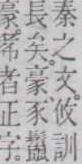 秦之文攸訓
長矣豪豕鬣
豪希者正字